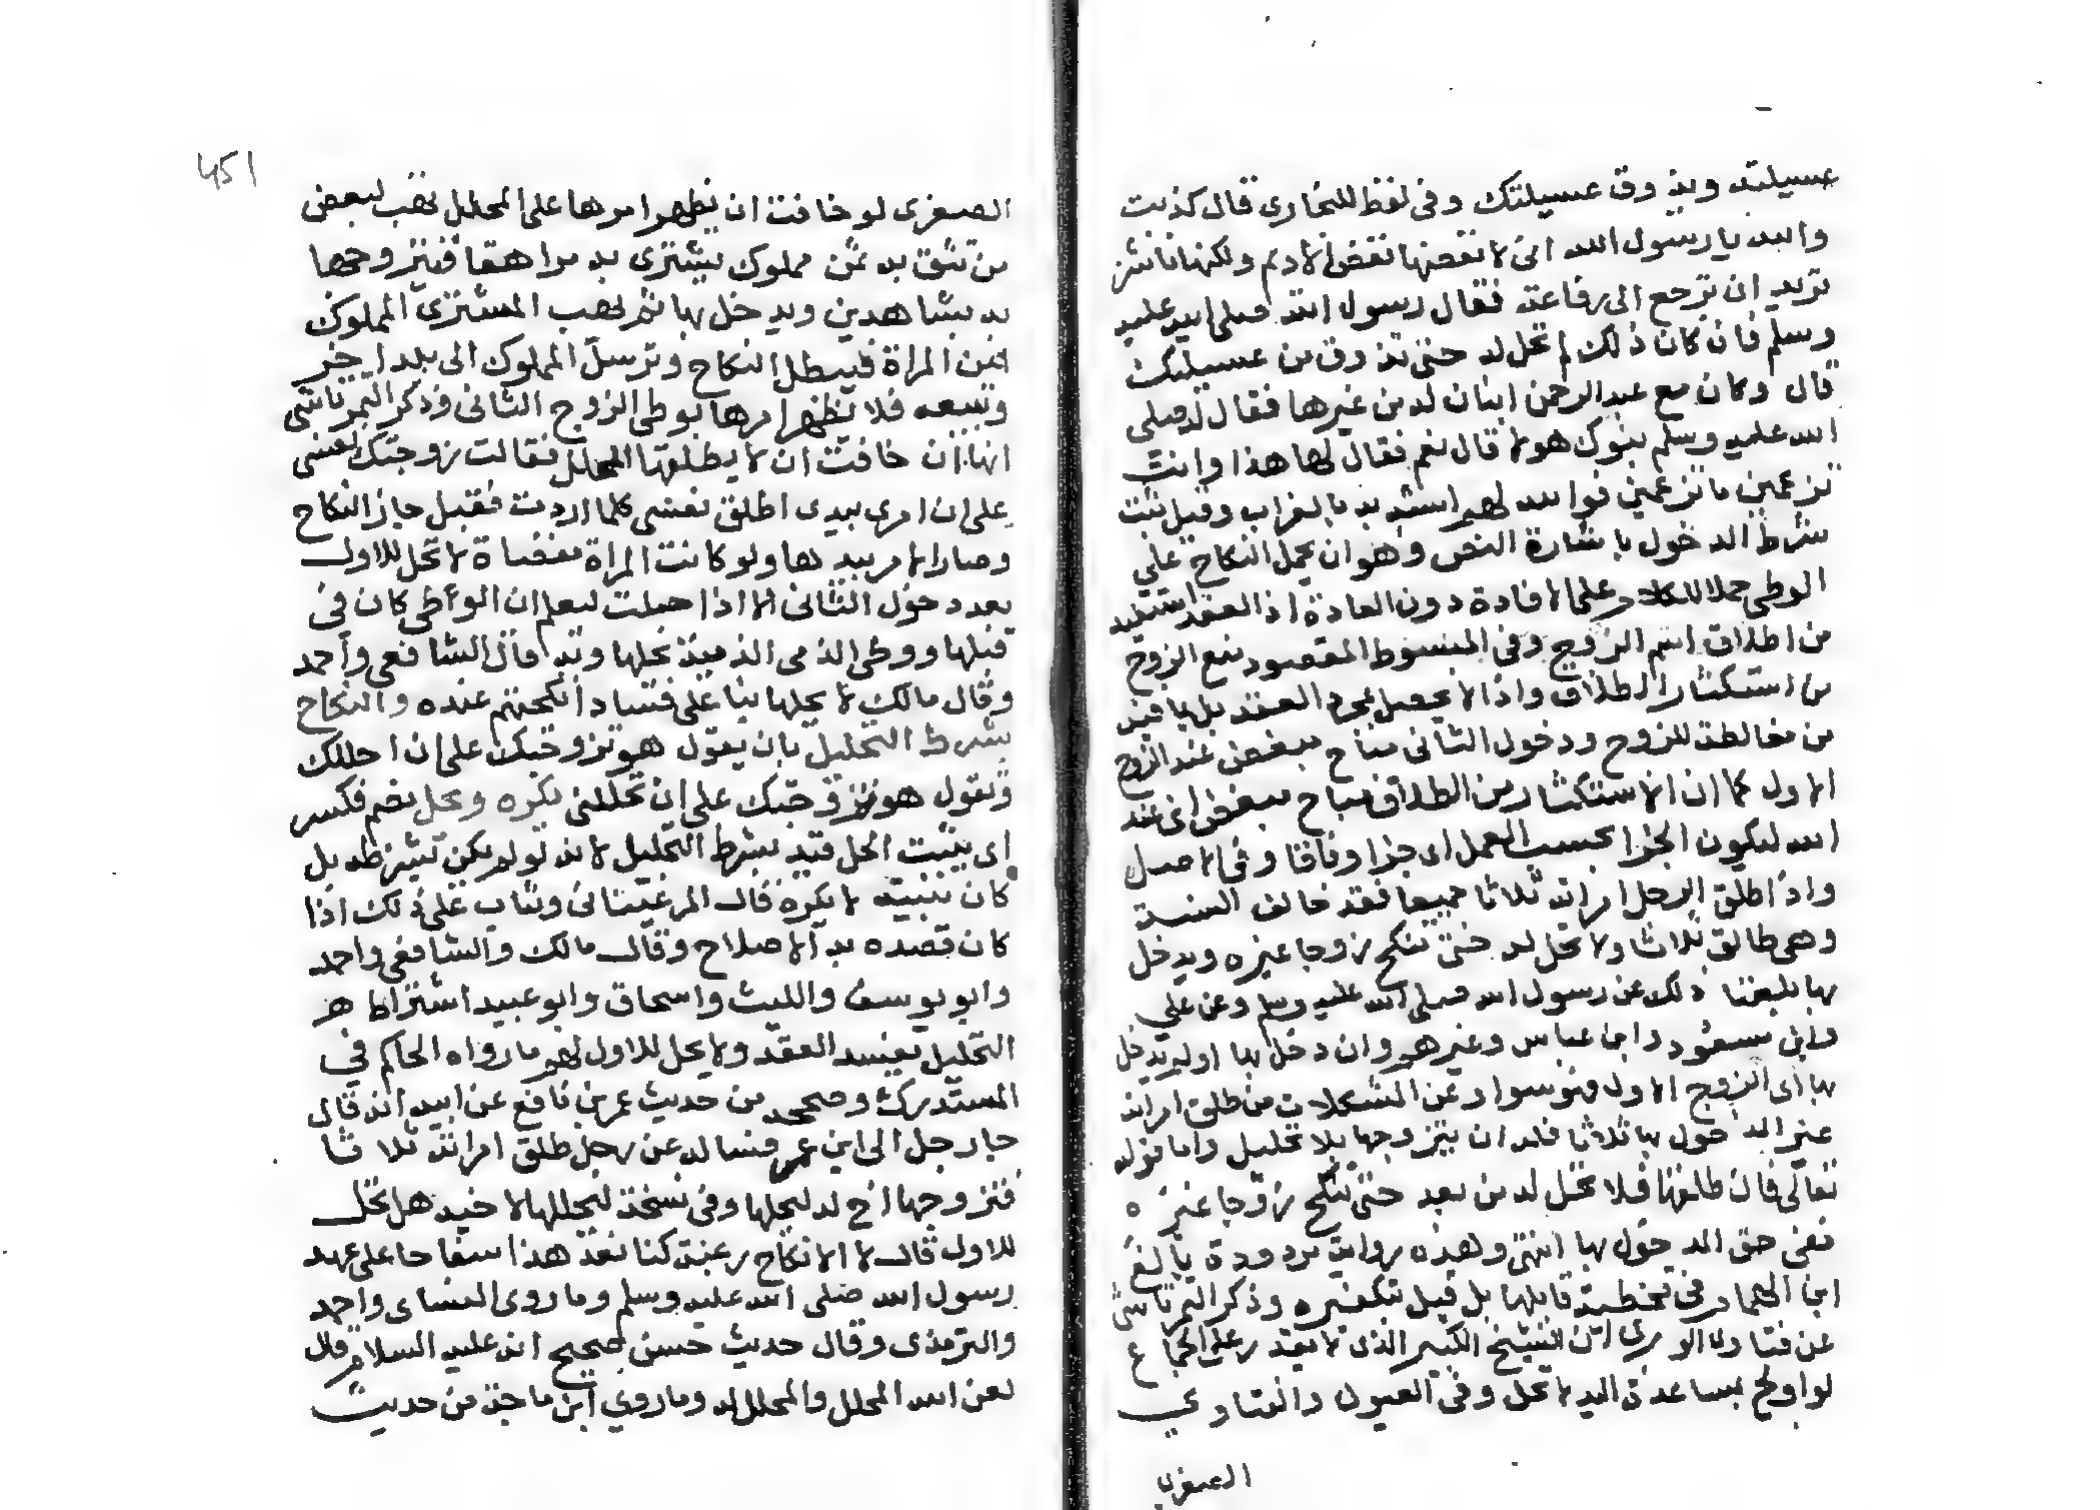 عسيلته ويذوق عسيلتك وفي لفظ للبخاري قال كذبت
والله يا رسول الله اني لانفضها نفض الاديم ولكنها ناشز
تريد ان ترجع الى رفاعة فقال رسول الله صلى الله عليه
وسلم فان كان ذلك لم تحل له حتى تذوق من عسيلتك
قال وكان مع عبد الرحمن ابنان له من غيرها فقال له صلى
الله عليه وسلم بنوك هولا قال نعم فقال لها هذا وانت
تزعمين ما تزعمين فوالله لهم اشبه به بالغراب وقيل ثبت
شرط الدخول باشارة النص وهو ان يحمل النكاح على
الوطي حملا للكلام على الافادة دون العادة اذ العقد استفيد
من اطلاق اسم الزوج وفي المبسوط المقصود منع الزوج
من استكثار الطلاق واذا لا يحصل بمجرد العقد بل بما فيه
من مخالطة للزوج ودخول الثاني مباح مبغض عند الزوج
الاول كما ان الاستكثار من الطلاق مباح مبغض اي عند
الله ليكون الجزا بحسب العمل اي جزا وفاقا وفي الاصل
واذا طلق الرجل امراته ثلاثا جميعا فقد خالف السنة
وهي طالق ثلاثا ولا تحل له حتى تنكح زوجا غيره ويدخل
بها بلغنا ذلك عن رسول الله صلى الله عليه وسلم وعن علي
وابن مسعود وابن عباس وغيرهم وان دخل بها اولم يدخل
بها اي الزوج الاول فهو سوا وعن المشكلات من طلق امراته
غير الدخول بها ثلاثا فله ان يتزوجها بلا تحليل واما قوله
تعالى فان طلقها فلا تحل له من بعد حتى تنكح زوجا غيره
ففي حق المدخول بها انتهى وهذه رواية مردودة بالغ
ابن الهمام في تخطية قايلها بل قيل بتكفيره وذكر التمرتاشي
عن فتاوى الوبري ان الشيخ الكبير الذي لا يقدر على الجماع
لو اولج بمساعدة اليد لا تحل وفي العيون والفتاوي
الصغرى
451
الصغرى لو خافت ان يظهر امرها على المحلل تهب لبعض
من تثق به ثمن مملوك يشتري به مراهقا فيتزوجها
به بشاهدين ويدخل بها ثم يهب المشتري المملوك
من المراة فيبطل النكاح وترسل المملوك الى بلد اخر
وتبيعه فلا يظهر امرها بوطي الزوج الثاني وذكر التمرتاشي
انها ان خافت ان لا يطلقها المحلل فقالت زوجتك نفسي
على ان امري بيدي اطلق نفسي كلما اردت فقبل جاز النكاح
وصار الامر بيدها ولو كانت المراة مفضاة لا تحل للاول
بعد دخول الثاني الا اذا حبلت ليعلم ان الوطي كان في
قبلها ووطي الذمي الذمية يحلها وبه قال الشافعي واحمد
وقال مالك لا يحلها بنا على فساد انكحتهم عنده والنكاح
بشرط التحليل بان يقول هو تزوجتك على ان احللك
وتقول هو تزوجتك على ان تحللني يكره وتحل بضم فكسر
اي يثبت الحل فيه بشرط التحليل لانه لو لم يكن يشترطه بل
كان بنيته لا يكره قال المرغيناني ويثاب على ذلك اذا
كان قصده به الاصلاح وقال مالك والشافعي واحمد
وابو يوسف والليث واسحاق وابو عبيد اشتراط
التحليل يفسد العقد ولا يحل للاول لهم ما رواه الحاكم في
المستدرك وصححه من حديث عمر بن نافع عن ابيه انه قال
جا رجل الى ابن عمر فساله عن رجل طلق امراته ثلاثا
فتزوجها اخ له ليحلها وفي نسخة ليحللها لاخيه هل تحل
للاول قال لا الا نكاح رغبة كنا نعد هذا سفاحا على عهد
رسول الله صلى الله عليه وسلم وما روى النساي واحمد
والترمذي وقال حديث حسن صحيح انه عليه السلام قال
لعن الله المحلل والمحلل له وما روي ابن ماجة من حديث